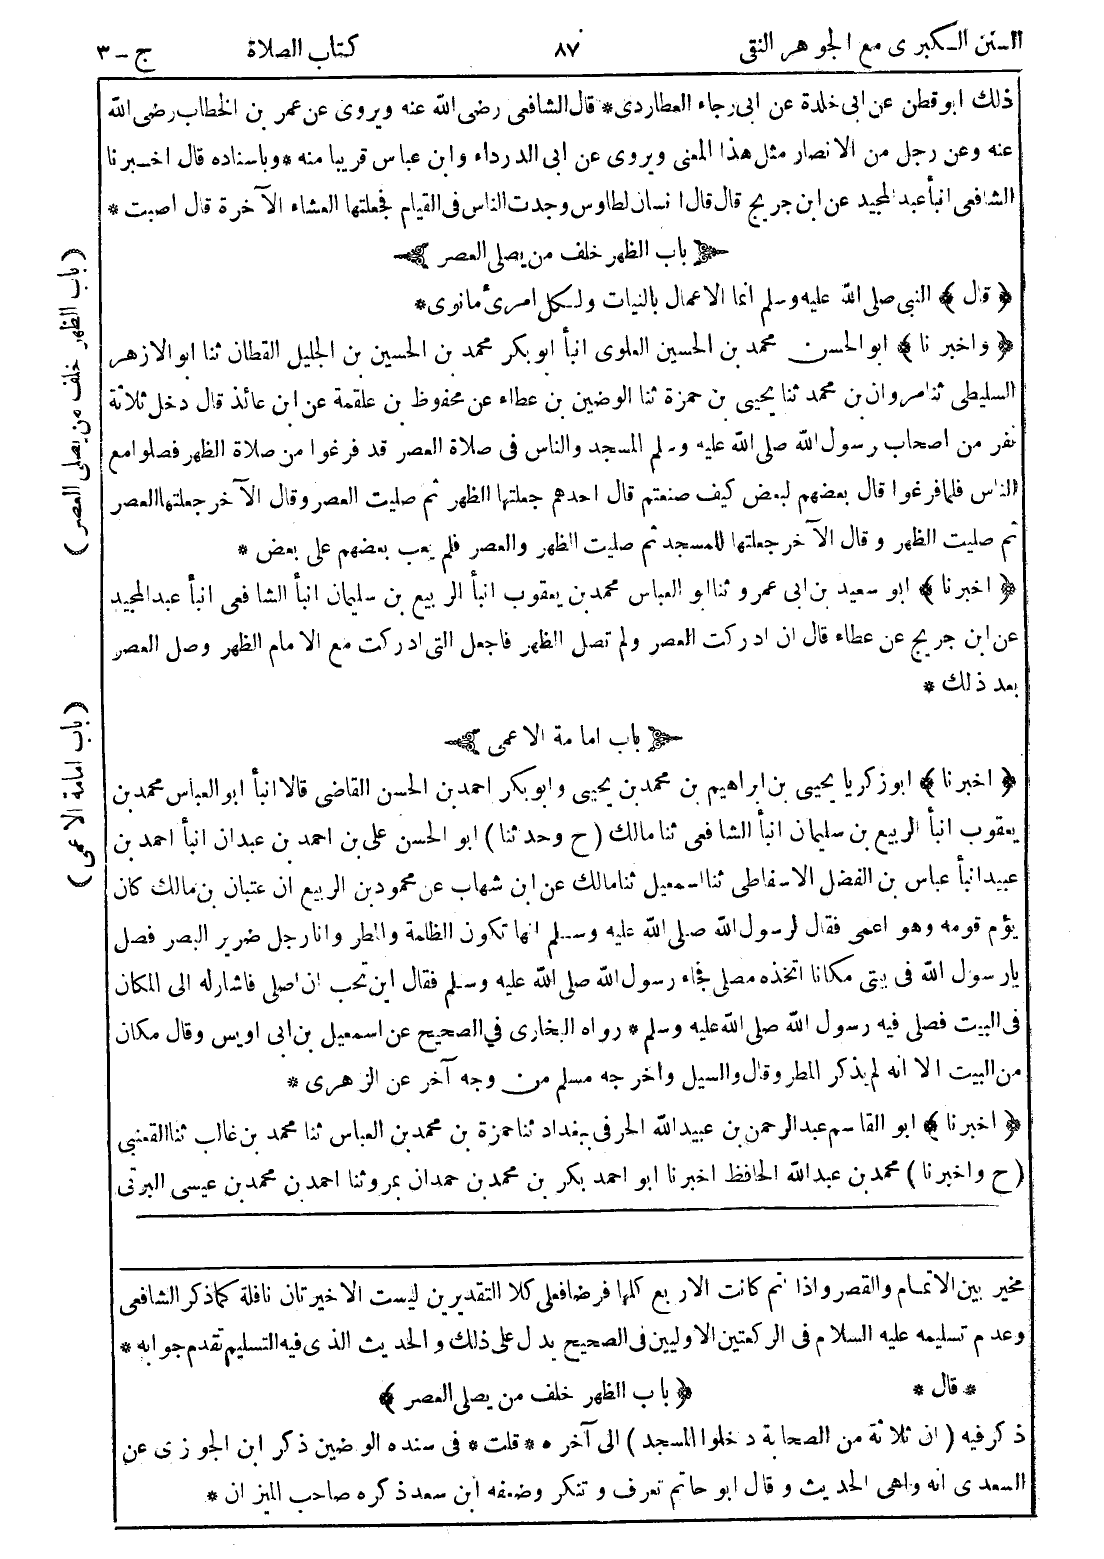 السنن الكبرى مع الجوهر النقى ٨٧ كتاب الصلاة ج - ٣
ذلك ابو قطن عن ابى خلدة عن ابى رجاء العطاردى * قال الشافعى رضى الله عنه ويروى عن عمر بن الخطاب رضى الله
عنه وعن رجل من الانصار مثل هذا المعنى ويروى عن ابى الدرداء وابن عباس قريبا منه * وباسناده قال اخبرنا
الشافعى انبأ عبد المجيد عن ابن جريج قال قال انسان لطاوس وجدت الناس فى القيام فجعلتها العشاء الآخرة قال اصبت *
باب الظهر خلف من يصلى العصر
﴿ قال ﴾ النبى صلى الله عليه وسلم انما الاعمال بالنيات ولكل امرئ مانوى *
﴿ واخبرنا ﴾ ابو الحسن محمد بن الحسين العلوى انبأ ابو بكر محمد بن الحسين بن الجليل القطان ثنا ابو الازهر
السليطى ثنا مروان بن محمد ثنا يحيى بن حمزة ثنا الوضين بن عطاء عن محفوظ بن علقمة عن ابن عائذ قال دخل ثلاثة
نفر من اصحاب رسول الله صلى الله عليه وسلم المسجد والناس فى صلاة العصر قد فرغوا من صلاة الظهر فصلوا مع
الناس فلما فرغوا قال بعضهم لبعض كيف صنعتم قال احدهم جعلتها الظهر ثم صليت العصر وقال الآخر جعلتها العصر
ثم صليت الظهر وقال الآخر جعلتها للمسجد ثم صليت الظهر والعصر فلم يعب بعضهم على بعض *
﴿ اخبرنا ﴾ ابو سعيد بن ابى عمرو ثنا ابو العباس محمد بن يعقوب انبأ الربيع بن سليمان انبأ الشافعى انبأ عبد المجيد
عن ابن جريج عن عطاء قال ان ادركت العصر ولم تصل الظهر فاجعل التى ادركت مع الامام الظهر وصل العصر
بعد ذلك *
باب امامة الاعمى
﴿ اخبرنا ﴾ ابو زكريا يحيى بن ابراهيم بن محمد بن يحيى وابو بكر احمد بن الحسن القاضى قالا انبأ ابو العباس محمد بن
يعقوب انبأ الربيع بن سليمان انبأ الشافعى ثنا مالك ( ح وحدثنا ) ابو الحسن على بن احمد بن عبدان انبأ احمد بن
عبيد انبأ عباس بن الفضل الاسفاطى ثنا اسمعيل ثنا مالك عن ابن شهاب عن محمود بن الربيع ان عتبان بن مالك كان
يؤم قومه وهو اعمى فقال لرسول الله صلى الله عليه وسلم انها تكون الظلمة والمطر وانا رجل ضرير البصر فصل
يارسول الله فى بيتى مكانا اتخذه مصلى فجاء رسول الله صلى الله عليه وسلم فقال اين تحب ان اصلى فاشار له الى المكان
فى البيت فصلى فيه رسول الله صلى الله عليه وسلم * رواه البخارى في الصحيح عن اسمعيل بن ابى اويس وقال مكان
من البيت الا انه لم يذكر المطر وقال والسيل واخرجه مسلم من وجه آخر عن الزهرى *
﴿ اخبرنا ﴾ ابو القاسم عبد الرحمن بن عبيد الله الحرفى ببغداد ثنا حمزة بن محمد بن العباس ثنا محمد بن غالب ثنا القعنبى
( ح واخبرنا ) محمد بن عبد الله الحافظ اخبرنا ابو احمد بكر بن محمد بن حمدان بمرو ثنا احمد بن محمد بن عيسى البرتى
مخير بين الاتمام والقصر واذا تم كانت الاربع كلها فرضا فعلى كلا التقديرين ليست الاخيرتان نافلة كما ذكر الشافعى
وعدم تسليمه عليه السلام فى الركعتين الاوليين فى الصحيح يدل على ذلك والحديث الذى فيه التسليم تقدم جوابه *
* قال * ﴿ باب الظهر خلف من يصلى العصر ﴾
ذكر فيه ( ان ثلاثة من الصحابة دخلوا المسجد ) الى آخره * قلت * فى سنده الوضين ذكر ابن الجوزى عن
السعدى انه واهى الحديث وقال ابو حاتم تعرف وتنكر وضعفه ابن سعد ذكره صاحب الميزان *
( باب الظهر خلف من يصلى العصر )
( باب امامة الاعمى )